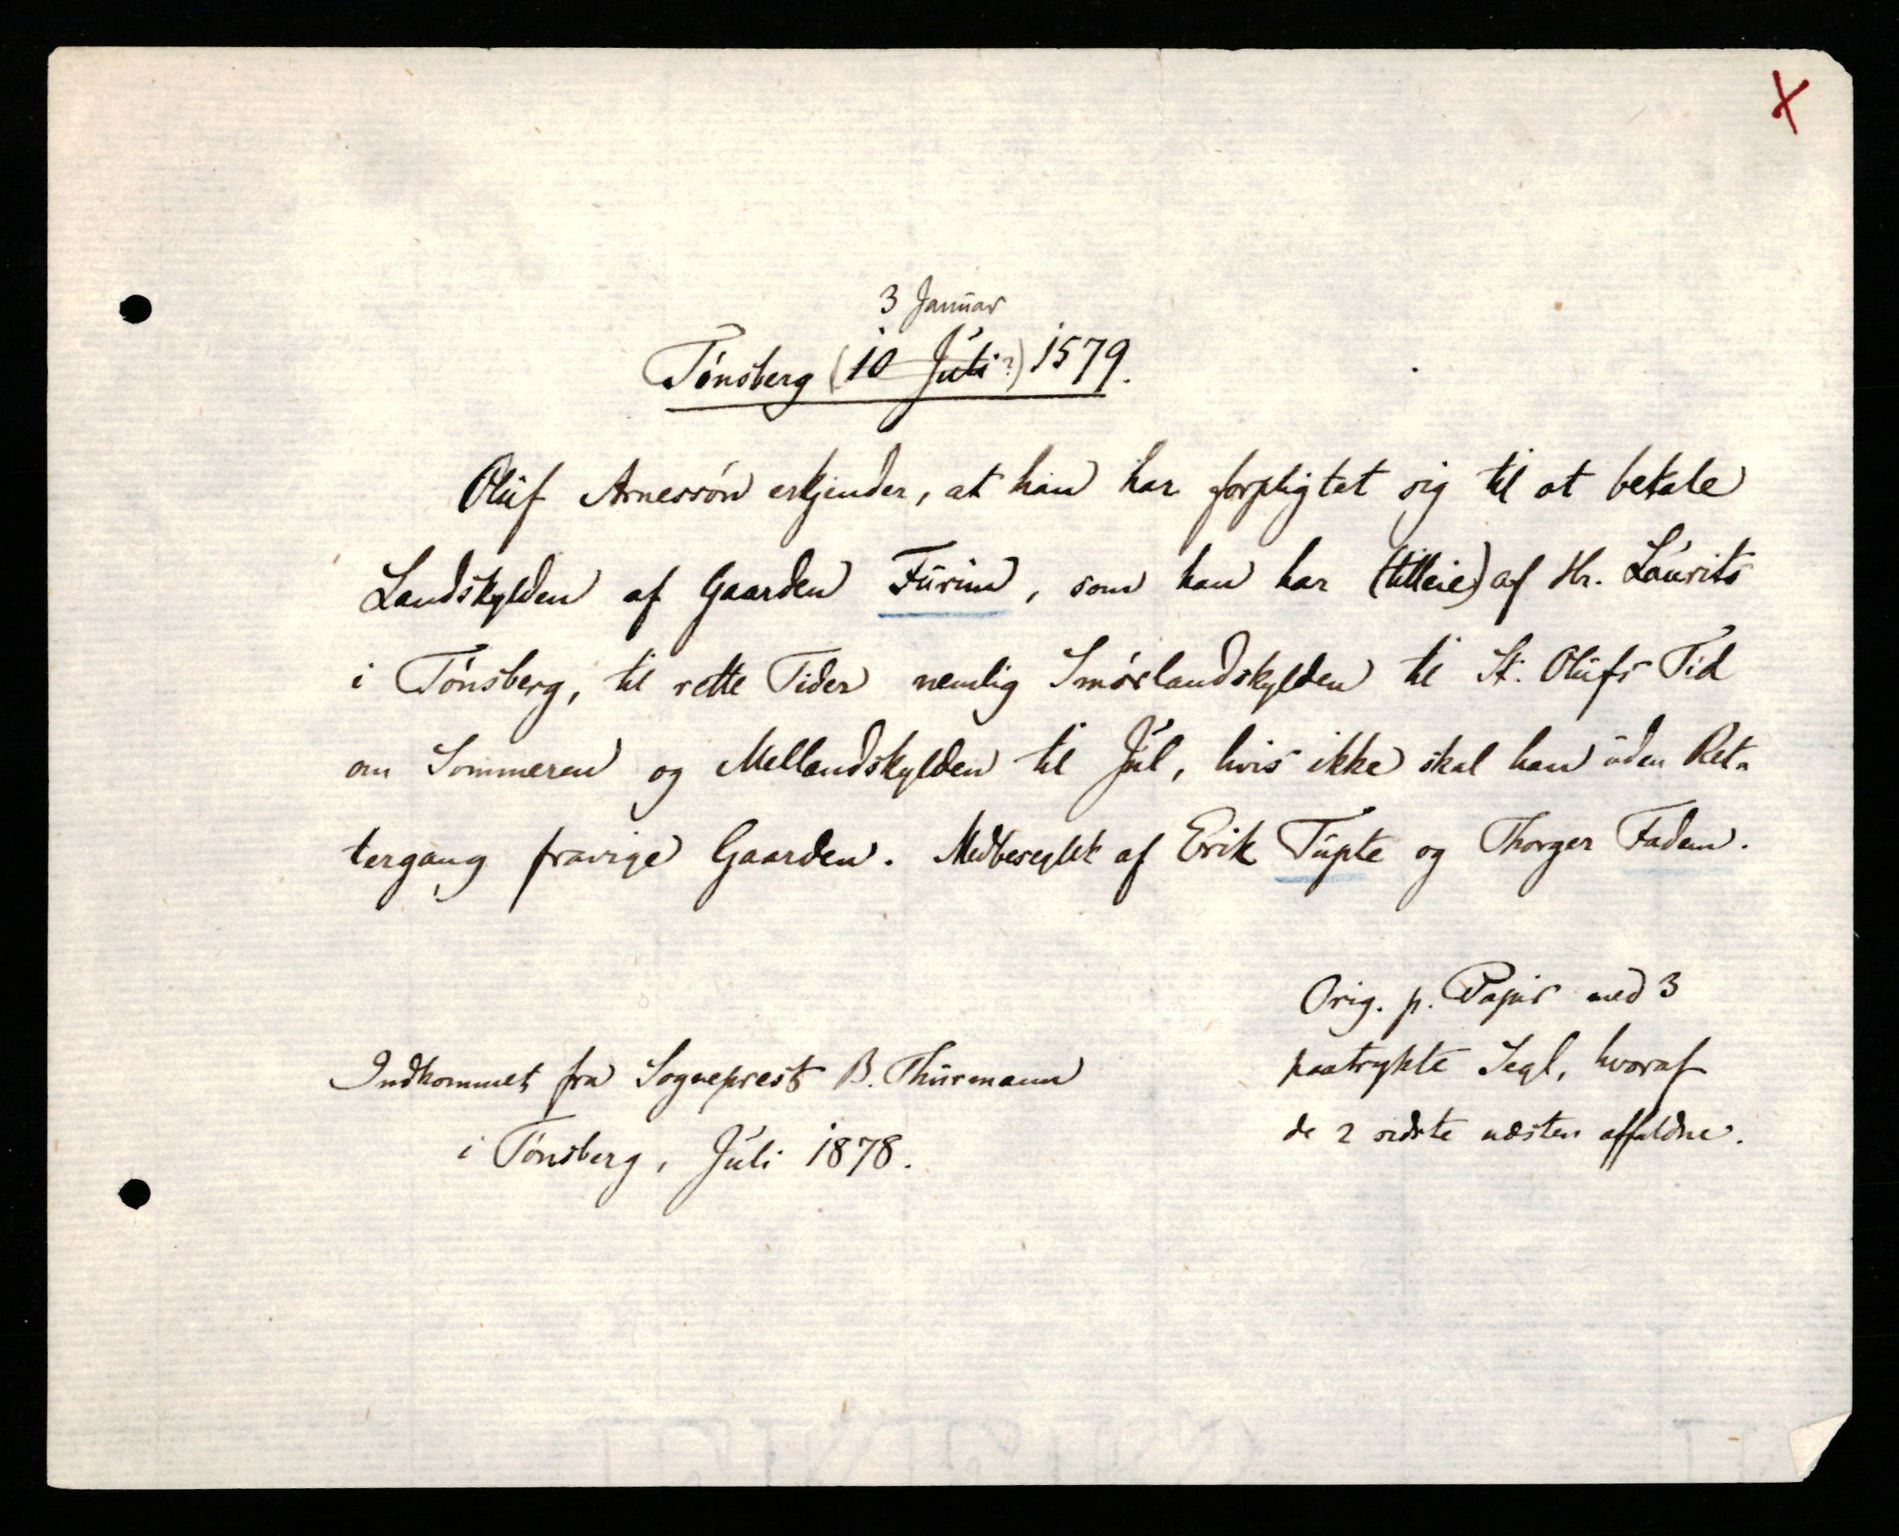 X
3 Januar
Tönsberg (10 Juli?) 1579.
Oluf Arnessön erkjender, at han har forpligtet sig til at betale
Landskylden af Gaarden Furim, som han har (tilleie) af Hr. Laurits
i Tönsberg, til rette Tider nemlig Smörlandskylden til St. Olufs Tid
om Sommeren og Mellandskylden til Jul, hvis ikke skal han uden Ret-
tergang fravige Gaarden. Medbeseglet af Erik Tufte og Thorger Fadem.
Orig. p. Papir med 3
paatrykte Segl, hvoraf
de 2 sidste næsten affaldne.
Indkommet fra Sogneprest B. Thurmann
i Tönsberg, Juli 1878.